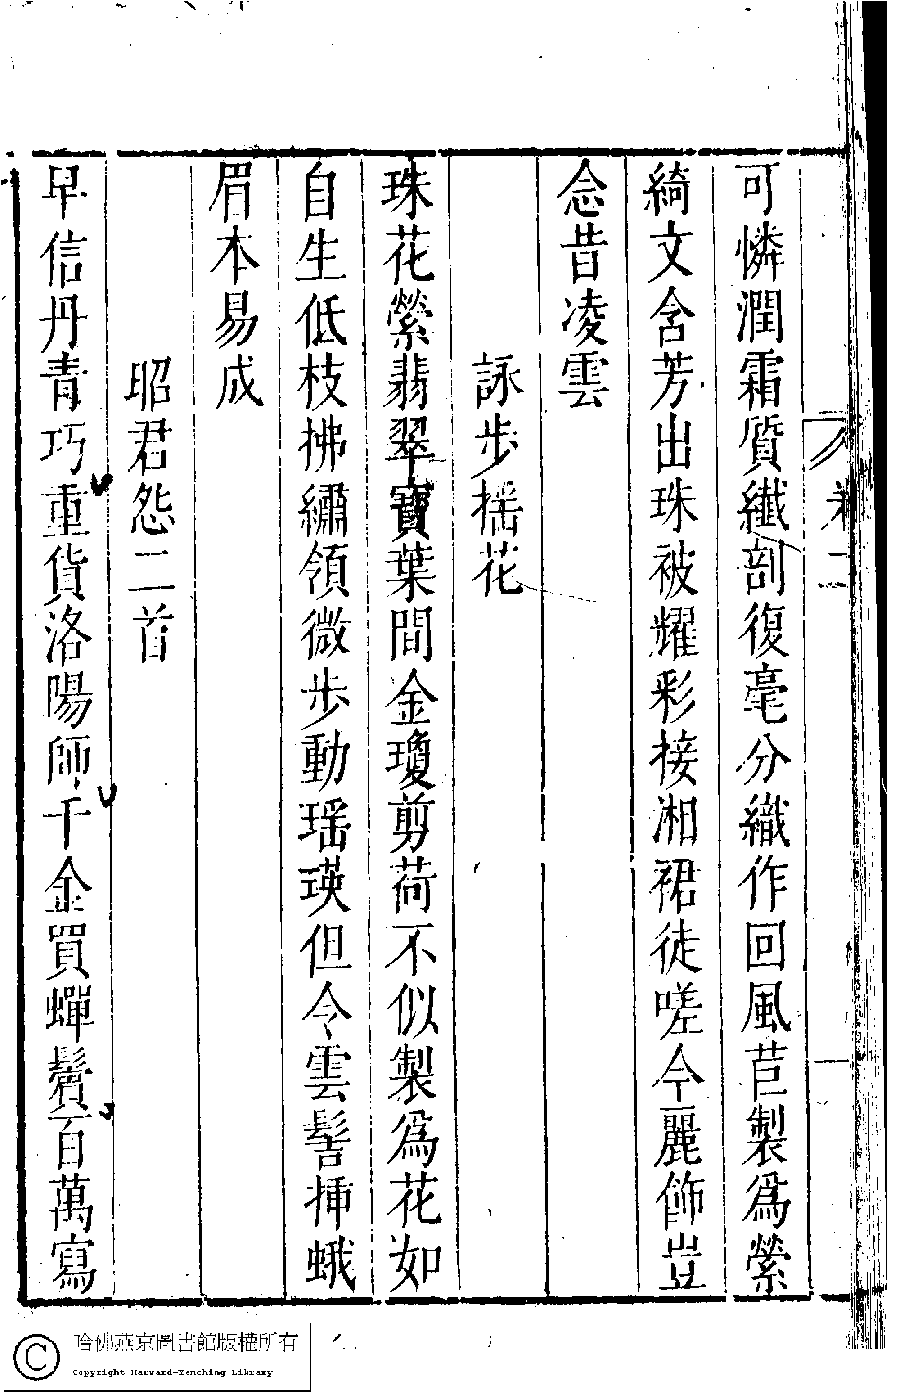 卷二
可憐潤霜質纎剖復毫分織作回風苣製爲縈
綺文含芳出珠被耀彩接湘裙徒嗟今麗飾豈
念昔凌雲
詠步摇花
珠花縈翡翠寶葉間金瓊剪荷不似製爲花如
自生低枝拂繡領微步動瑶瑛但令雲髻揷蛾
眉本易成
昭君怨二首
早信丹青巧重貨洛陽師千金買蟬鬢百萬寫
哈佛燕京圖書館版權所有
Copyright Harvard-Yenching Library